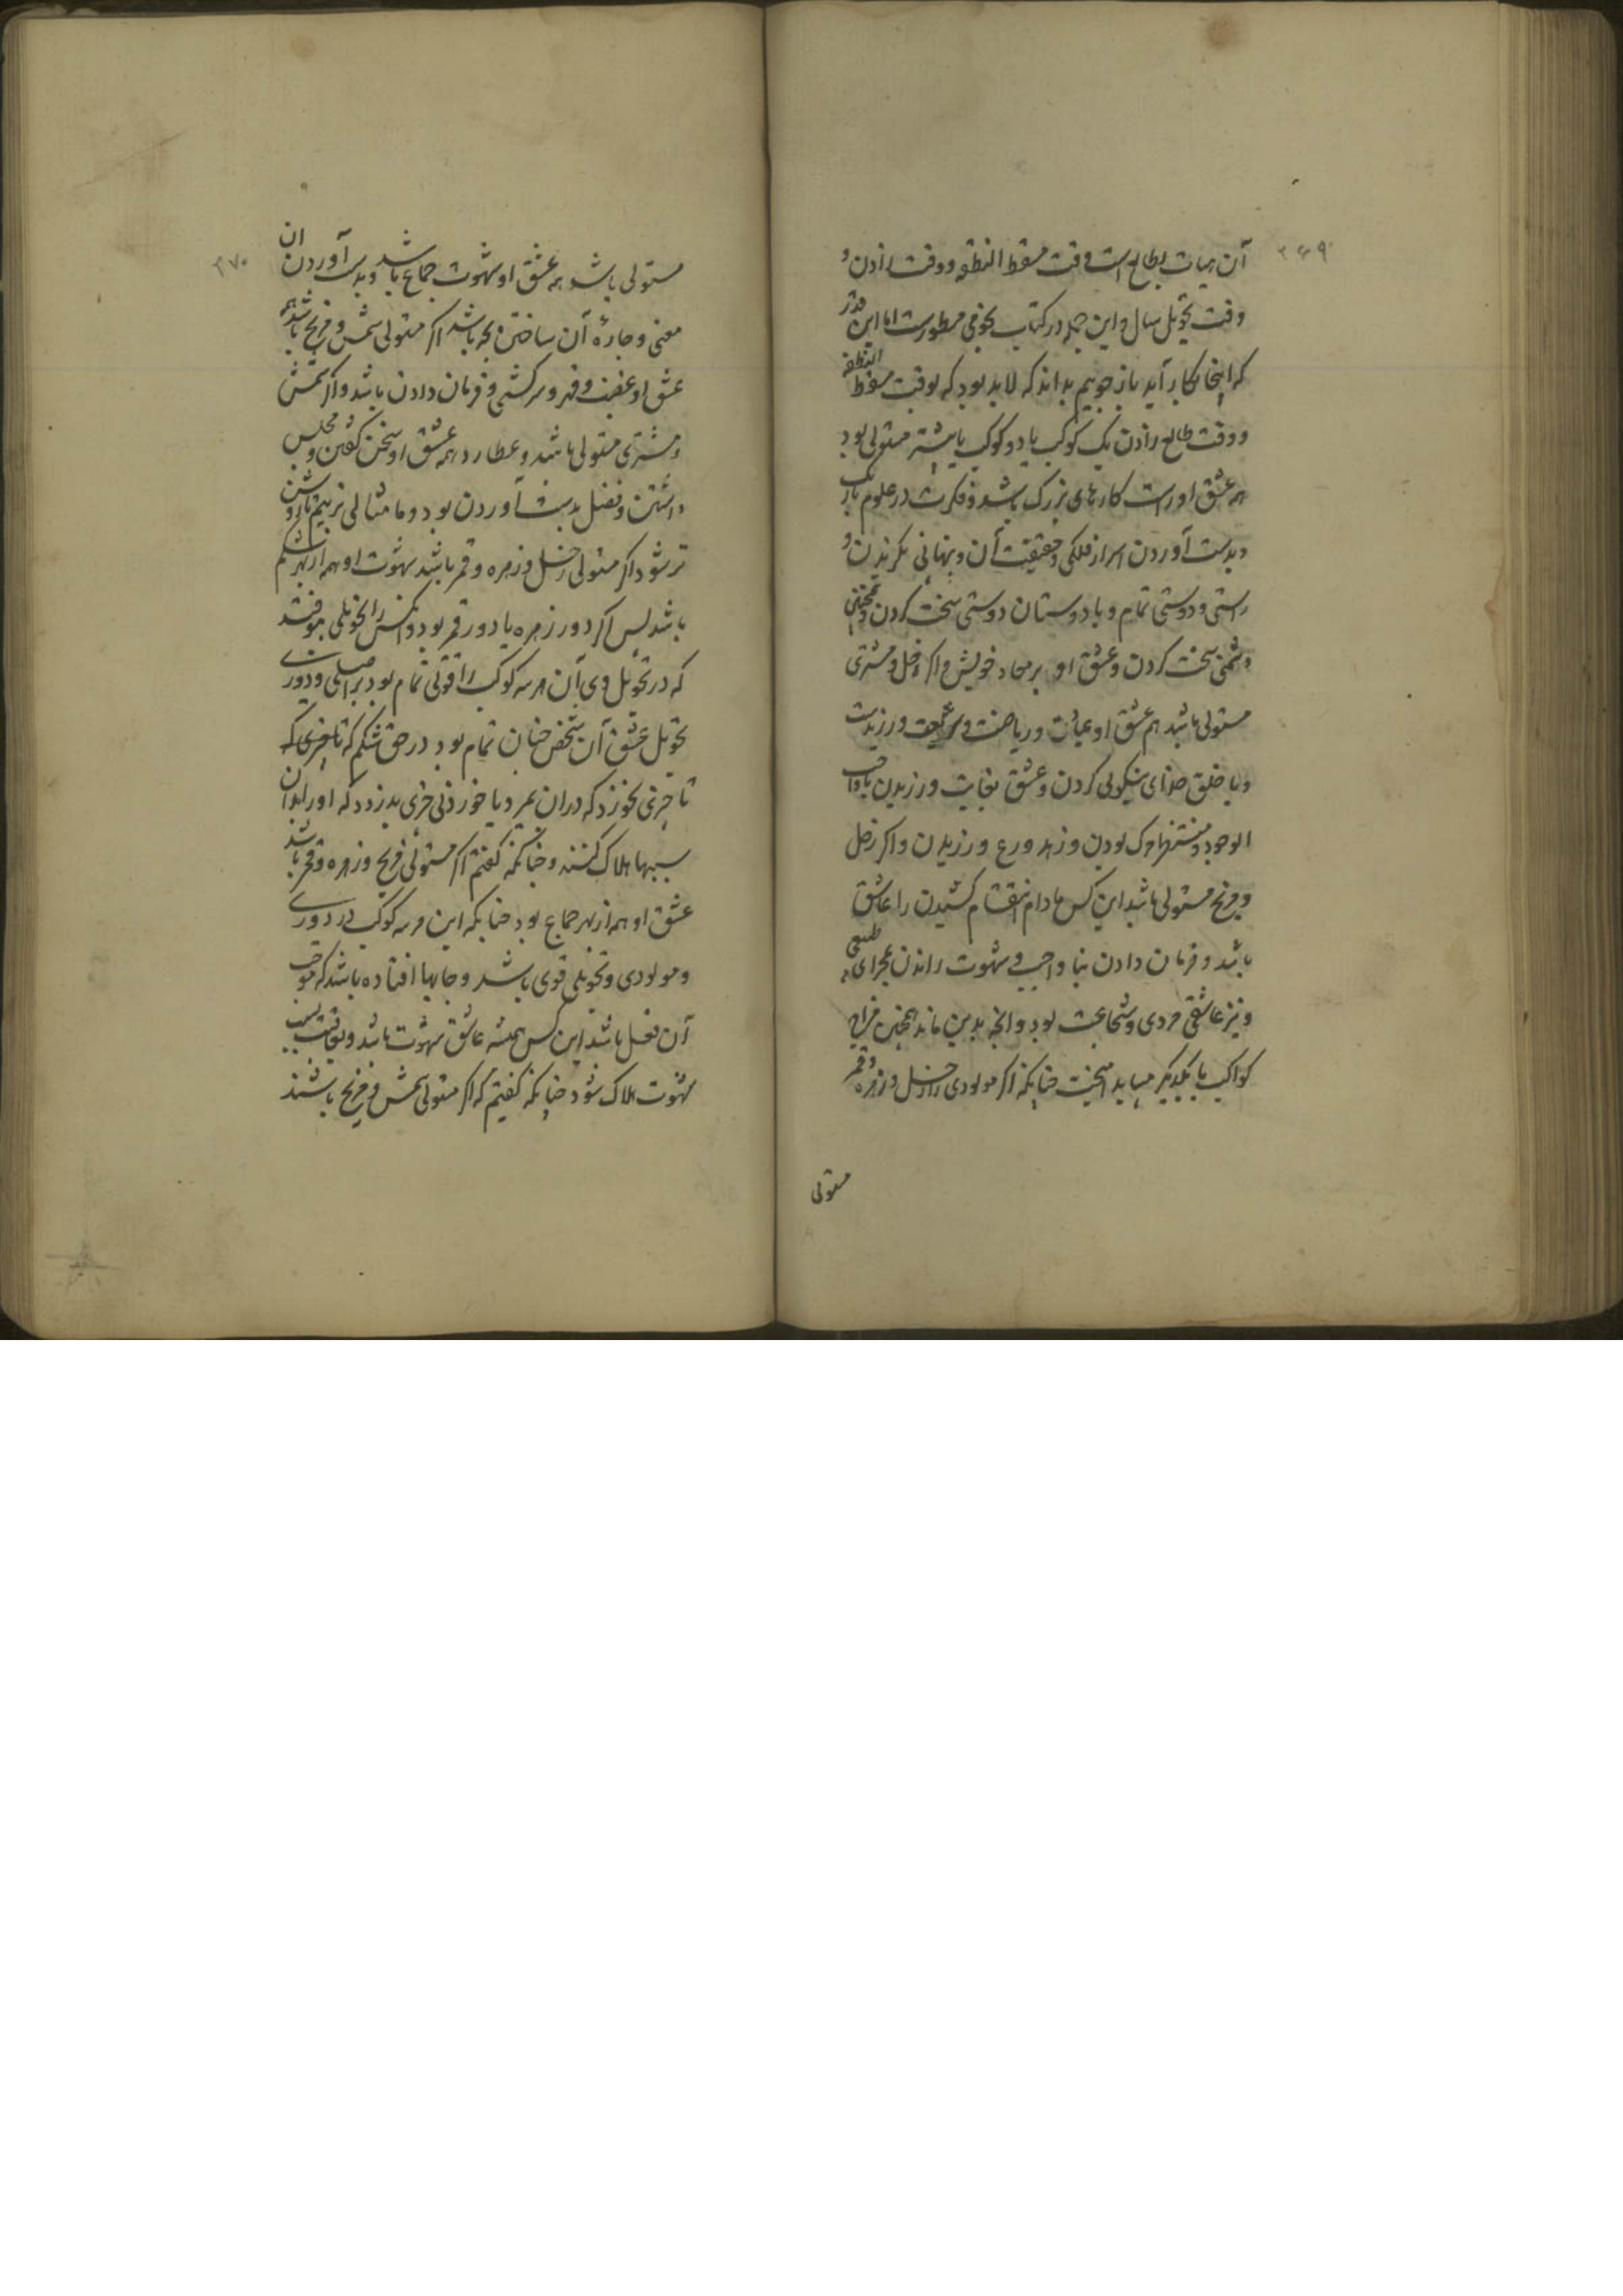 ۳۶۹
آن هیات بطالع است وقت مسقط النطفه ووقت زادن و
وقت تحویل سال و این جمله در کتاب نجومی مسطورست اما این قدر
که اینجا بکار آید باز جوییم بداند که لابد بود که بوقت مسقط النطفه
ووقت طالع زادن یک کوکب یا دو کوکب یا بیشتر مستولی بود
همه عشق او راست کارهای بزرگ باشد و فکرت در علوم باریک
وبدست آوردن اسرار فلکی وحقیقت آن وپنهانی نگریدن و
راستی ودوستی تمام و با دوستان دوستی سخت کردن و همچنین
دشمنی سخت کردن وعشق او بر معاد خویش و اگر زحل و مشتری
مستولی باشد هم عشق او عبادت وریاضت و شریعت ورزیدن
وبا خلق خدای نیکویی کردن وعشق بغایت ورزیدن با واجب
الوجود و بودن وزهد ورع ورزیدن واکر زحل
ومریخ مستولی باشد این کس مادام انتقام کشیدن را عاشق
باشد وفرمان دادن بنا واجب و شهوت راندن بمجرای طبیعی
ونیز عاشقی مردی وشجاعت بود وانچه بدین ماند همچنین مزاج
کواکب با یکدیگر میباید امیخت چنانکه اگر مولودی را زحل وزهره وقمر
مستولی
۳۷۰
مستولی باشد همه عشق او شهوت جماع باشد وبدست آوردن ان
معنی وچارهٔ آن ساختن بچه باشد اکر مستولی شمس و مریخ باشد همه
عشق او غضب وقهر وسرکشی وفرمان دادن باشد واکر شمس
ومشتری مستولی باشد وعطارد همه عشق او سخن گفتن و مجلس
داشتن وفضل بدست آوردن بود وما مثالی نزنیم تا روشن
تر شود اکر مستولی زحل وزهره وقمر باشد شهوت او همه از بهر شکم
باشد پس اکر دور زهره یا دور قمر بود وانکس را تحویلی موفتد
که در تحویل وی آن هر سه کوکب را قوتی تمام بود بر اصلی ودوری
تحویل عشق آن شخص چنان تمام بود در حق شکم که تا چیزی که
تا چیزی بخورد که در ان بمیرد ویا خوردنی چیزی بدزدد که او را بدان
سببها هلاک کنند وچنانکه کفتیم اکر مستولی مریخ وزهره وقمر باشد
عشق او همه از بهر جماع بود چنانکه این هر سه کوکب در دوری
ومولودی وتحویلی قوی باشد وجایها افتاده باشد که موجب
آن فعل باشد این کس همیشه عاشق شهوت باشد وبعاقبت بسبب
شهوت هلاک شود چنانکه کفتیم که اکر مستولی شمس و مریخ باشند